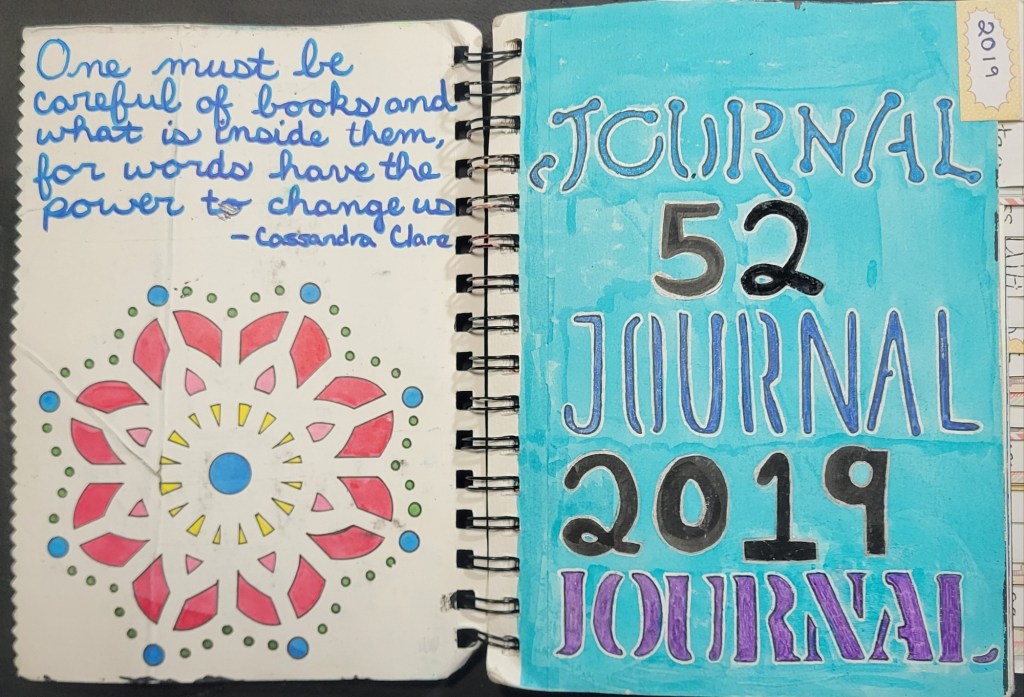 One must be
careful of books and
what is inside them,
for words have the
power to change us
- Cassandra Clare
2019
JOURNAL
52
JOURNAL
2019
JOURNAL